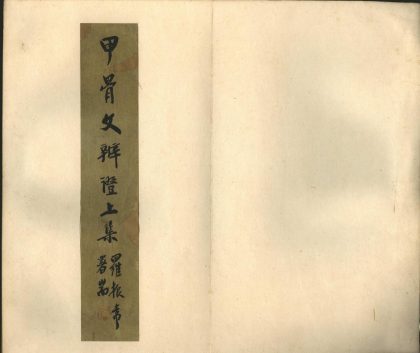 甲骨文辨證上集
羅振常
署耑